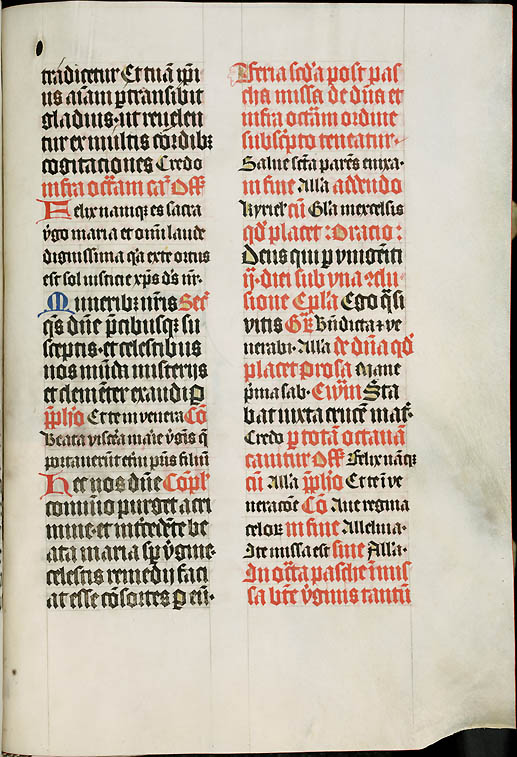 tradicetur Et tuā ip̄i
us aīam p̄transibit
gladius · ut reuelen
tur ex multis cordibꝫ
cogitaciones Credo
infra octām ca᷑ Off
Felix namque es sacra
v̄go maria et om̄i laude
dignissima q̄a ex te ortus
est sol iusticie xp̄s d̄s nr̄
Muneribꝫ nr̄is Sec᷑
q̄s dn̄e p̄cibusqꝫ su
sceptis · et celestibus
nos mūda misterijs
et clemēter exaudi p̄
p̄fho Et te in venera Cō
Beata viscēa marie v̄gis q̄
portauerūt et̄ni p̄ris filiū
Hec nos dn̄e Cōpl᷑
comūio purget a cri
mine · et intcedēte be
ata maria sp̄ v̄gine ·
celestis remedij faci
at esse cōsortes p eū ·
Feria scd̄a post pas
cha missa de dn̄a et
infra octām ordine
subscp̄to teneatur
Salue sct̄a parēs enixa ·
in fine All̄a addendo
kyriel᷑ cū Gl̄a in excelsis
qd̄ placet : Oracio :
Deus qui p vnigeniti
ij · diei sub vna ꝯclu
sione Epl̄a Ego q̄si
vitis Gr̄ Bn̄dicta ⁊ ve
nerabi · All̄a de dn̄a qd̄
placet Prosa Mane
p̄ma sab · Ewm̄ Sta
bat iuxta crucē mat᷑
Credo p totā octauā
cantitur Off Felix nāqꝫ
cū All̄a p̄fho Et te ī ve
neracōe Cō Aue regina
celoꝝ in fine Alleluia ·
Ite missa est sine All̄a ·
In octa pasche t̄mis
sa bt̄e v̄ginis tantū